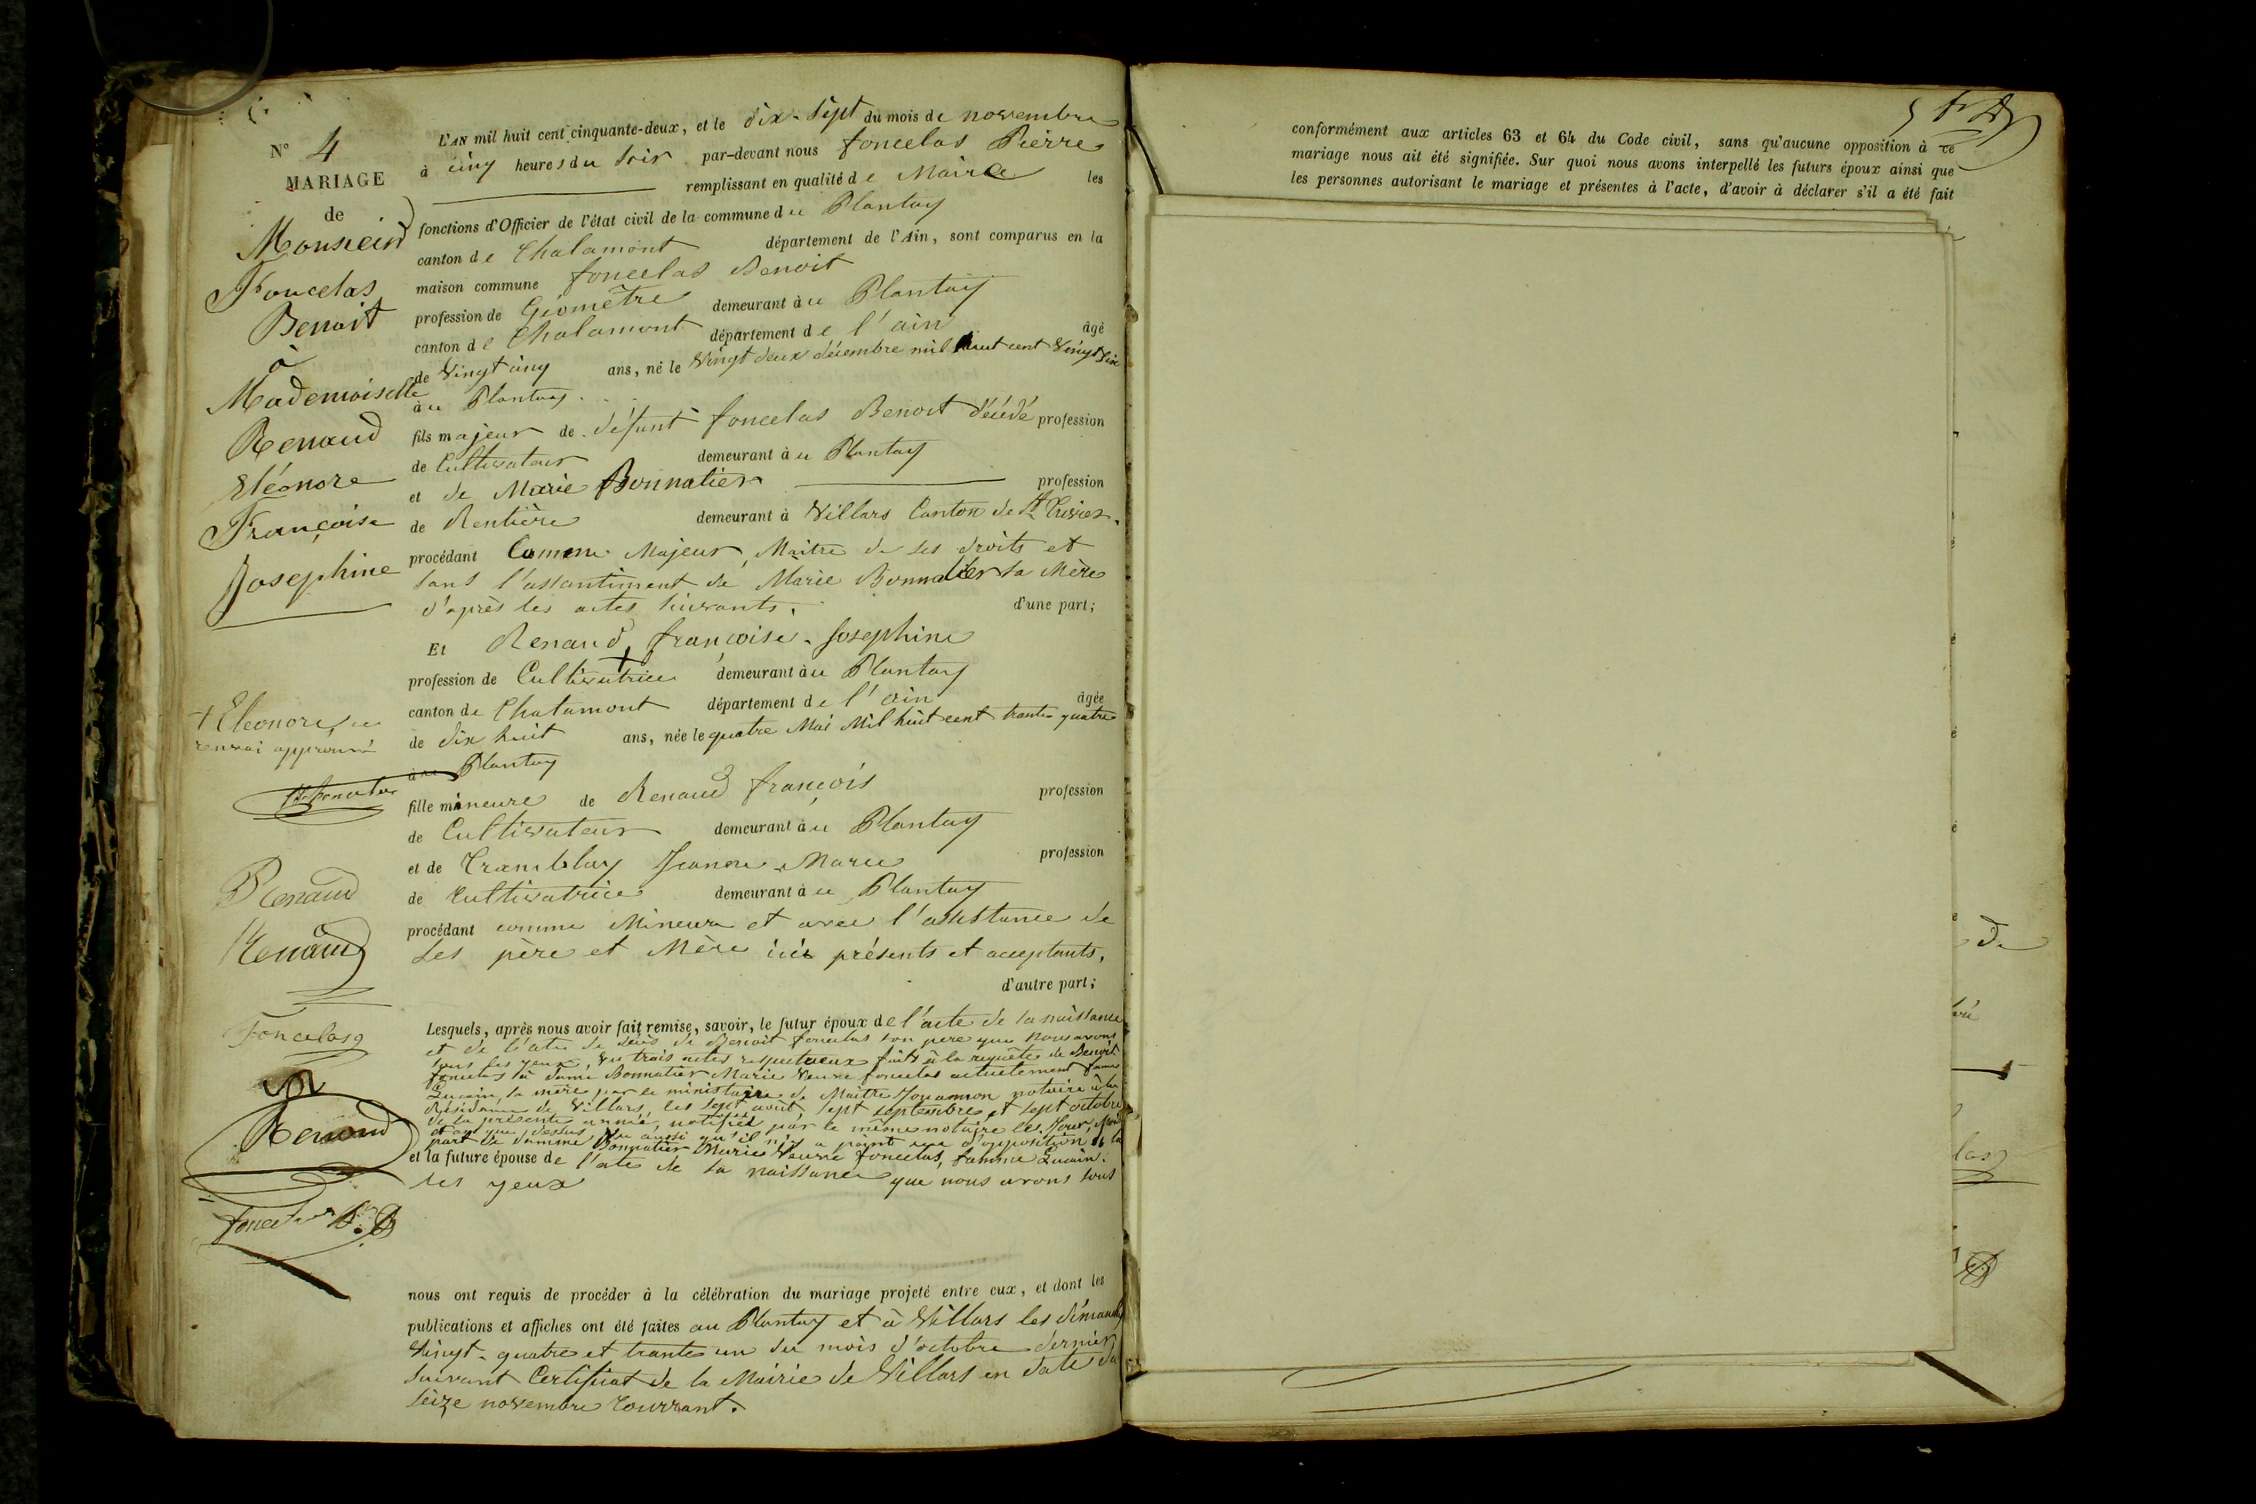 N° 4
MARIAGE
de
Monsieur
Foncelas
Benoit
à
Mademoiselle
Renaud
Eléonore
Françoise
Josephine
+ Eleonore
renvoi approuvé
Renaud
Renaud
Foncelas
Renaud
Foncelas
L'AN mil huit cent cinquante-deux, et le dix-sept du mois de novembre
à cinq heures du soir par-devant nous foncelas Pierre
remplissant en qualité de Maire les
fonctions d'Officier de l'état civil de la commune du Plantay
canton de Chalamont département de l'Ain, sont comparus en la
maison commune foncelas Benoit
profession de Géomètre demeurant àu Plantay
canton de Chalamont département de l'ain âgé
de Vingt cinq ans, né le Vingt deux décembre mil huit cent Vingt six
àu Plantay.
fils majeur de défunt foncelas Benoit décédé profession
de Cultivateur demeurant àu Plantay
et de Marie Bonnatier profession
de Rentière demeurant à Villars Canton de St Trivier.
procédant Comme Majeur, Maître de ses droits et
sans l'assantiment de Marie Bonnatier sa Mère
d'après les actes suivants. d'une part;
Et Renaud, + françoise-Josephine
profession de Cultivatrice demeurant àu Plantay
canton de Chalamont département de l'ain âgée
de dix huit ans, née le quatre Mai Mil huit cent trante quatre
àu Plantay
fille mineure de Renaud françois profession
de Cultivateur demeurant àu Plantay
et de Tramblay Jeanne-Marie profession
de Cultivatrice demeurant àu Plantay
procédant comme Mineure et avec l'assistance de
ses père et Mère ici présents et acceptants.
d'autre part;
Lesquels, après nous avoir fait remise, savoir, le futur époux de l'acte de sa naissance
et de l'acte de décès de Benoit foncelas son pere que nous avons
sous les yeux, Vu trois actes respectueux faits à la requête de Benoit
foncelas à dame Bonnatier Marie Veuve foncelas actuellement femme
Quain, sa mère par le ministaire de Maitre Jouannon notaire à la
Résidance de Villars, les sept août, sept septembre et sept octobre
de la présente année, notifiés par le même notaire les Jour, Mois
et an que dessus Vu aussi qu'il n'y a point eu d'opposition de la
part de damme Bonnatier Marie Veuve foncelas, famme Quain.
et la future épouse de l'acte de sa naissance que nous avons sous
les yeux
nous ont requis de procéder à la célébration du mariage projeté entre eux, et dont les
publications et affiches ont été faites au Plantay et à Villars les dimanches
Vingt-quatre et trante un du mois d'octobre dernier
suivant Certificat de la Mairie de Villars en date du
seize novembre Courrant.
conformément aux articles 63 et 64 du Code civil, sans qu'aucune opposition à ce
mariage nous ait été signifiée. Sur quoi nous avons interpellé les futurs époux ainsi que
les personnes autorisant le mariage et présentes à l'acte, d'avoir à déclarer s'il a été fait
de